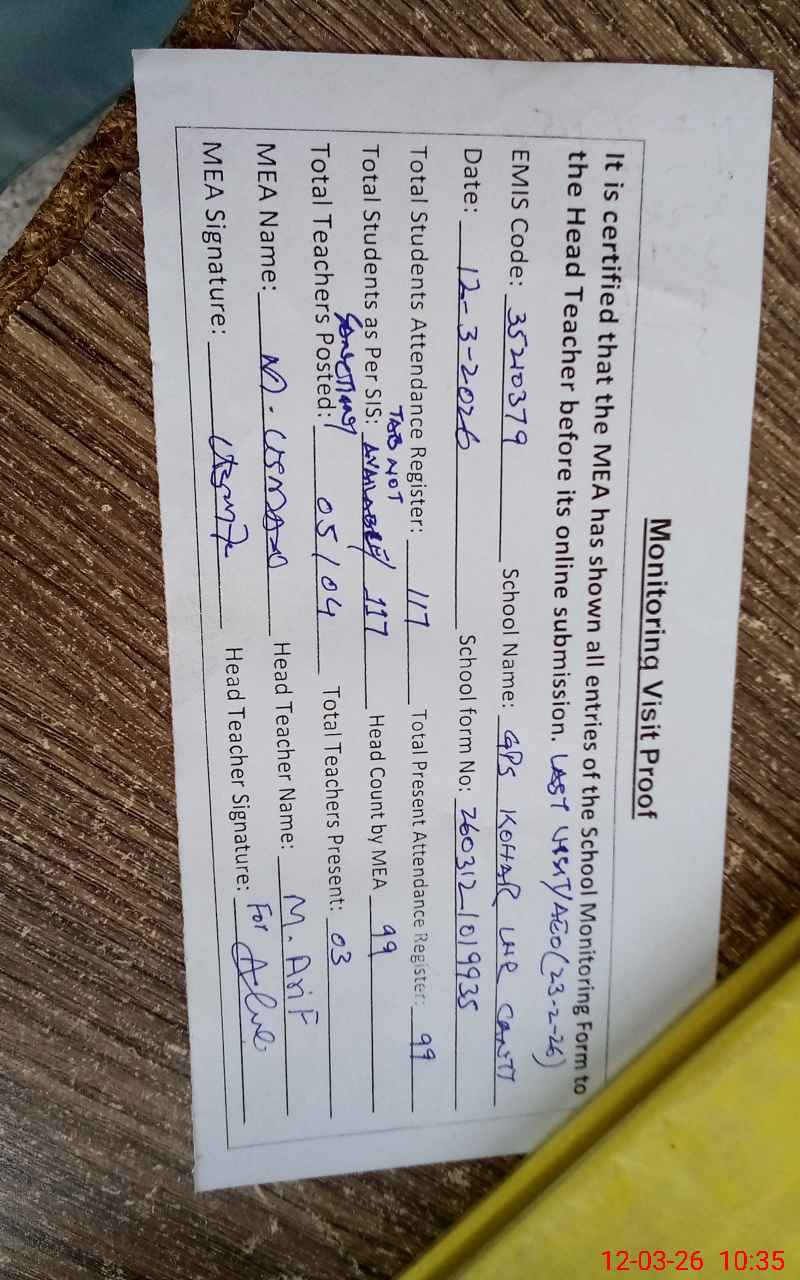 Monitoring Visit Proof
It is certified that the MEA has shown all entries of the School Monitoring Form to
the Head Teacher before its online submission. LAST VISIT/AEO (23-2-26)
EMIS Code: 35210379 School Name: GPS KOHAR LHR CANTT
Date: 12-3-2026 School form No: 260312_1019935
Total Students Attendance Register: 117 Total Present Attendance Register: 99
TAB NOT
Total Students as Per SIS: AVAILABLE/ 117 Head Count by MEA 99
Total Teachers Posted: 05/04 Total Teachers Present: 03
MEA Name: M. USMAN Head Teacher Name: M. Arif
MEA Signature: Head Teacher Signature: For
12-03-26 10:35